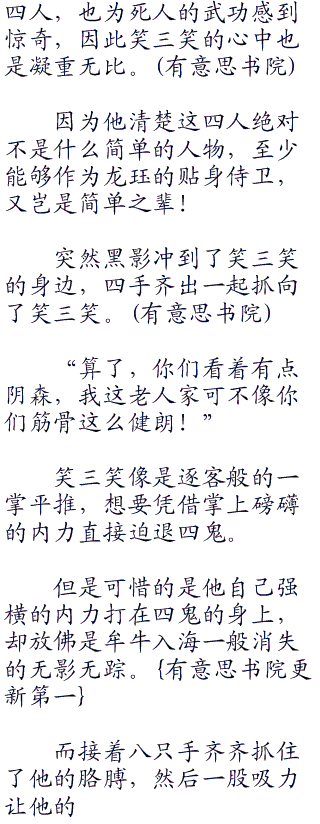 四人，也为死人的武功感到
惊奇，因此笑三笑的心中也
是凝重无比。(有意思书院)
因为他清楚这四人绝对
不是什么简单的人物，至少
能够作为龙珏的贴身侍卫，
又岂是简单之辈！
突然黑影冲到了笑三笑
的身边，四手齐出一起抓向
了笑三笑。(有意思书院)
“算了，你们看着有点
阴森，我这老人家可不像你
们筋骨这么健朗！”
笑三笑像是逐客般的一
掌平推，想要凭借掌上磅礴
的内力直接迫退四鬼。
但是可惜的是他自己强
横的内力打在四鬼的身上，
却放佛是牟牛入海一般消失
的无影无踪。{有意思书院更
新第一}
而接着八只手齐齐抓住
了他的胳膊，然后一股吸力
让他的